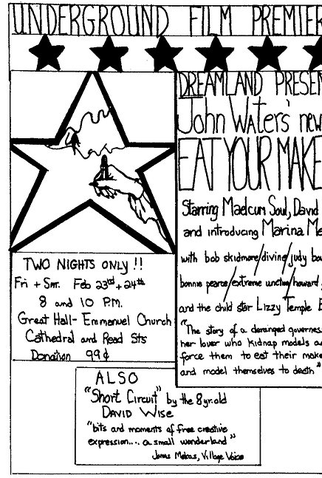 UNDERGROUND FILM PREMIER
DREAMLAND PRESEN
John Waters' new
EAT YOUR MAKE
Starring Maelcum Soul, David
and introducing Marina Me
with bob skidmore/divine/judy bo
bonnie pearce/extreme unction/howard
and the child star Lizzy Temple B
"The story of a deranged governes
her lover who kidnap models a
force them to eat their make
and model themselves to death"
TWO NIGHTS ONLY !!
Fri + Sat. Feb 23rd + 24th
8 and 10 P.M.
Great Hall- Emmanuel Church
Cathedral and Read Sts
Donation 99¢
ALSO
"Short Circuit" by the 8 yr. old
DAVID WISE
"bits and moments of free creative
expression... a small wonderland"
Jonas Mekas, Village Voice